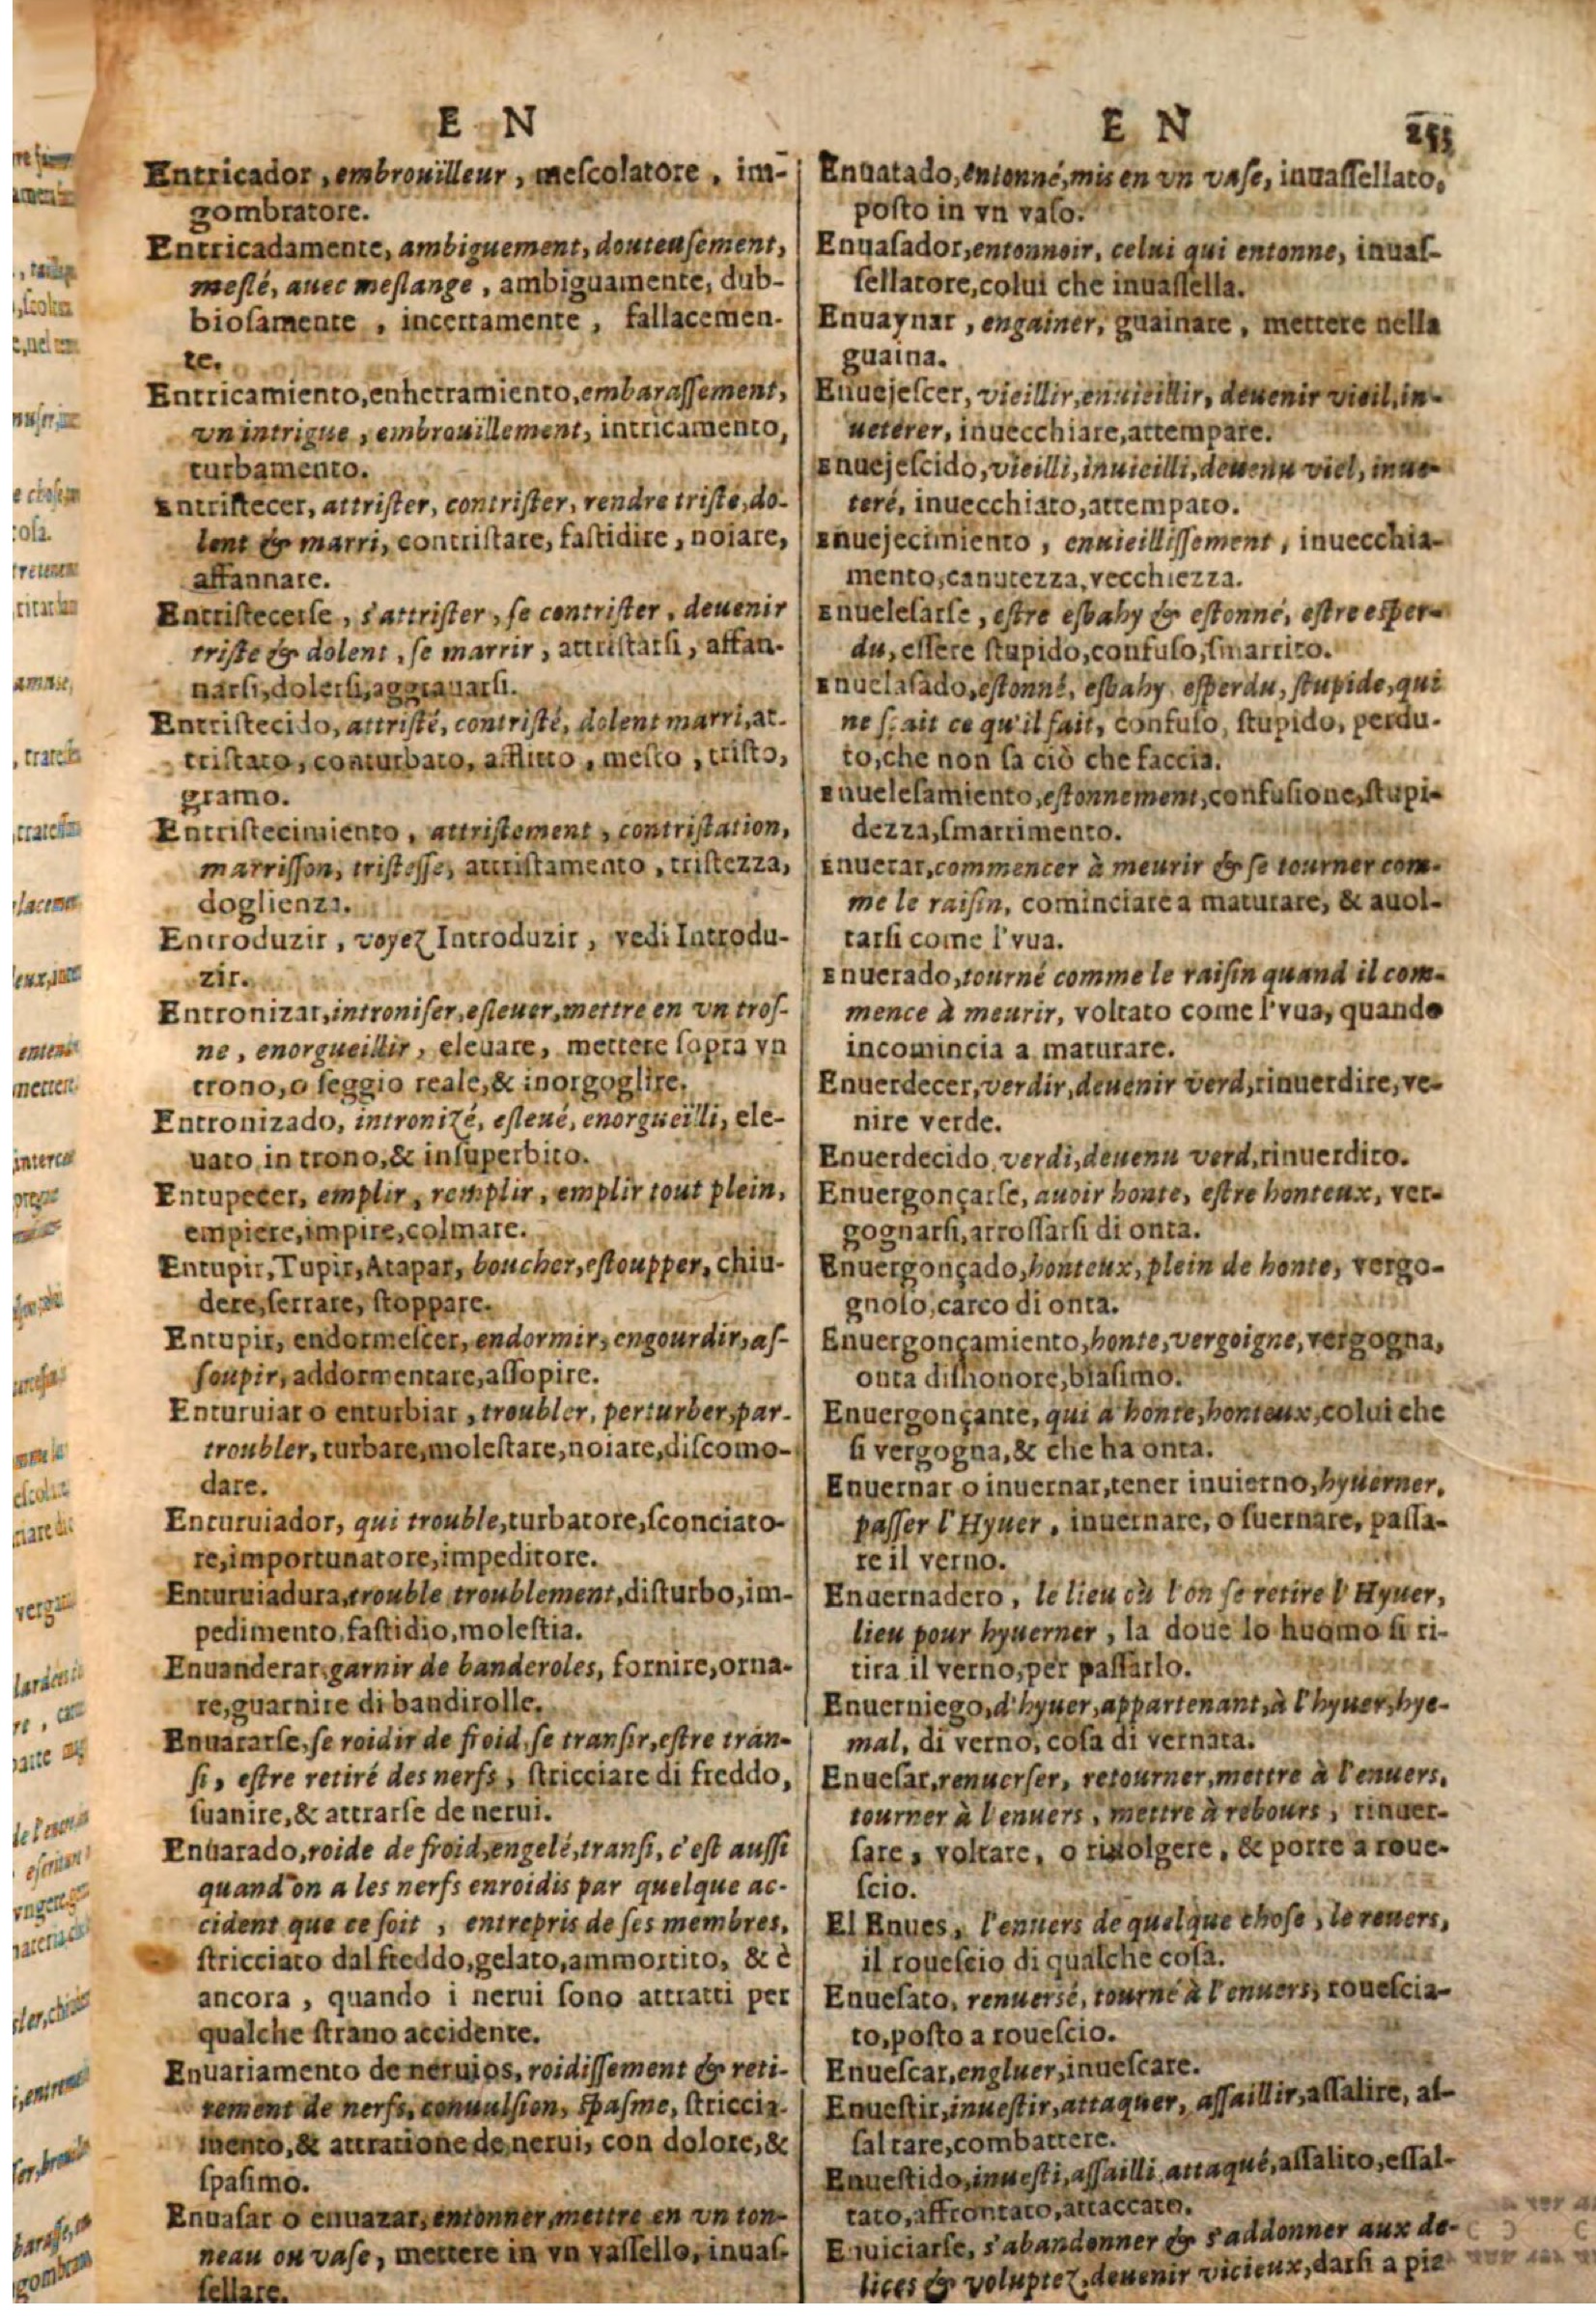 E N
Entricador, embrouilleur, meſcolatore, im-
gombratore.
Entricadamente, ambiguement, douteuſement,
meſlé, auec meſlange, ambiguamente, dub-
bioſamente, incertamente, fallacemen-
te.
Entricamiento, enhetramiento, embaraſſement,
vn intrigue, embrouillement, intricamento,
turbamento.
Entriſtecer, attriſter, contriſter, rendre triſte, do-
lent & marri, contriſtare, faſtidire, noiare,
affannare.
Entriſtecerſe, s'attriſter, ſe contriſter, deuenir
triſte & dolent, ſe marrir, attriſtarſi, affan-
narſi, dolerſi, aggrauarſi.
Entriſtecido, attriſté, contriſté, dolent marri, at-
triſtato, conturbato, afflitto, meſto, triſto,
gramo.
Entriſtecimiento, attriſtement, contriſtation,
marriſſon, triſteſſe, attriſtamento, triſtezza,
doglienza.
Entroduzir, voyez Introduzir, vedi Introdu-
zir.
Entronizar, introniſer, eſleuer, mettre en vn troſ-
ne, enorgueillir, eleuare, mettere ſopra vn
trono, o ſeggio reale, & inorgoglire.
Entronizado, intronizé, eſleué, enorgueilli, ele-
uato in trono, & inſuperbito.
Entupecer, emplir, remplir, emplir tout plein,
empiere, impire, colmare.
Entupir, Tupir, Atapar, boucher, eſtoupper, chiu-
dere, ſerrare, ſtoppare.
Entupir, endormeſcer, endormir, engourdir, aſ-
ſoupir, addormentare, aſſopire.
Enturuiar o enturbiar, troubler, perturber, par-
troubler, turbare, moleſtare, noiare, diſcomo-
dare.
Enturuiador, qui trouble, turbatore, ſconciato-
re, importunatore, impeditore.
Enturuiadura, trouble troublement, diſturbo, im-
pedimento, faſtidio, moleſtia.
Enuanderar, garnir de banderoles, fornire, orna-
re, guarnire di bandirolle.
Enuararſe, ſe roidir de froid, ſe tranſir, eſtre tran-
ſi, eſtre retiré des nerfs, ſtricciare di freddo,
ſuanire, & attrarſe de nerui.
Enuarado, roide de froid, engelé, tranſi, c'eſt auſſi
quand on a les nerfs enroidis par quelque ac-
cident que ce ſoit, entrepris de ſes membres,
ſtricciato dal freddo, gelato, ammortito, & è
ancora, quando i nerui ſono attratti per
qualche ſtrano accidente.
Enuariamento de neruios, roidiſſement & reti-
rement de nerfs, conuulſion, ſpaſme, ſtriccia-
mento, & attratione de nerui, con dolore, &
ſpaſimo.
Enuaſar o enuazar, entonner, mettre en vn ton-
neau ou vaſe, mettere in vn vaſſello, inuaſ-
ſellare.
E N 255
Enuatado, entonné, mis en vn vaſe, inuaſſellato,
poſto in vn vaſo.
Enuaſador, entonnoir, celui qui entonne, inuaſ-
ſellatore, colui che inuaſſella.
Enuaynar, engainer, guainare, mettere nella
guaina.
Enuejeſcer, vieillir, enuieillir, deuenir vieil, in-
ueterer, inuecchiare, attempare.
Enuejeſcido, vieilli, inuieilli, deuenu viel, inue-
teré, inuecchiato, attempato.
Enuejecimiento, enuieilliſſement, inuecchia-
mento, canutezza, vecchiezza.
Enueleſarſe, eſtre eſbahy & eſtonné, eſtre eſper-
du, eſſere ſtupido, confuſo, ſmarrito.
Enuelaſado, eſtonné, eſbahy eſperdu, ſtupide, qui
ne ſçait ce qu'il fait, confuſo, ſtupido, perdu-
to, che non ſa ciò che faccia.
Enueleſamiento, eſtonnement, confuſione, ſtupi-
dezza, ſmarrimento.
Enuerar, commencer à meurir & ſe tourner com-
me le raiſin, cominciare a maturare, & auol-
tarſi come l'vua.
Enuerado, tourné comme le raiſin quand il com-
mence à meurir, voltato come l'vua, quando
incomincia a maturare.
Enuerdecer, verdir, deuenir verd, rinuerdire, ve-
nire verde.
Enuerdecido, verdi, deuenu verd, rinuerdito.
Enuergonçarſe, auoir honte, eſtre honteux, ver-
gognarſi, arroſſarſi di onta.
Enuergonçado, honteux, plein de honte, vergo-
gnoſo, carco di onta.
Enuergonçamiento, honte, vergoigne, vergogna,
onta diſhonore, biaſimo.
Enuergonçante, qui a honte, honteux, colui che
ſi vergogna, & che ha onta.
Enuernar o inuernar, tener inuierno, hyuerner,
paſſer l'Hyuer, inuernare, o ſuernare, paſſa-
re il verno.
Enuernadero, le lieu où l'on ſe retire l'Hyuer,
lieu pour hyuerner, la doue lo huomo ſi ri-
tira il verno, per paſſarlo.
Enuerniego, d'hyuer, appartenant, à l'hyuer, hye-
mal, di verno, coſa di vernata.
Enueſar, renuerſer, retourner, mettre à l'enuers,
tourner à l'enuers, mettre à rebours, rinuer-
ſare, voltare, o riuolgere, & porre a roue-
ſcio.
El Enues, l'enuers de quelque choſe, le reuers,
il roueſcio di qualche coſa.
Enueſato, renuerſé, tourné à l'enuers, roueſcia-
to, poſto a roueſcio.
Enueſcar, engluer, inueſcare.
Enueſtir, inueſtir, attaquer, aſſaillir, aſſalire, aſ-
ſaltare, combattere.
Enueſtido, inueſti, aſſailli attaqué, aſſalito, eſſal-
tato, affrontato, attaccato.
Enuiciarſe, s'abandonner & s'addonner aux de-
lices & voluptez, deuenir vicieux, darſi a pia